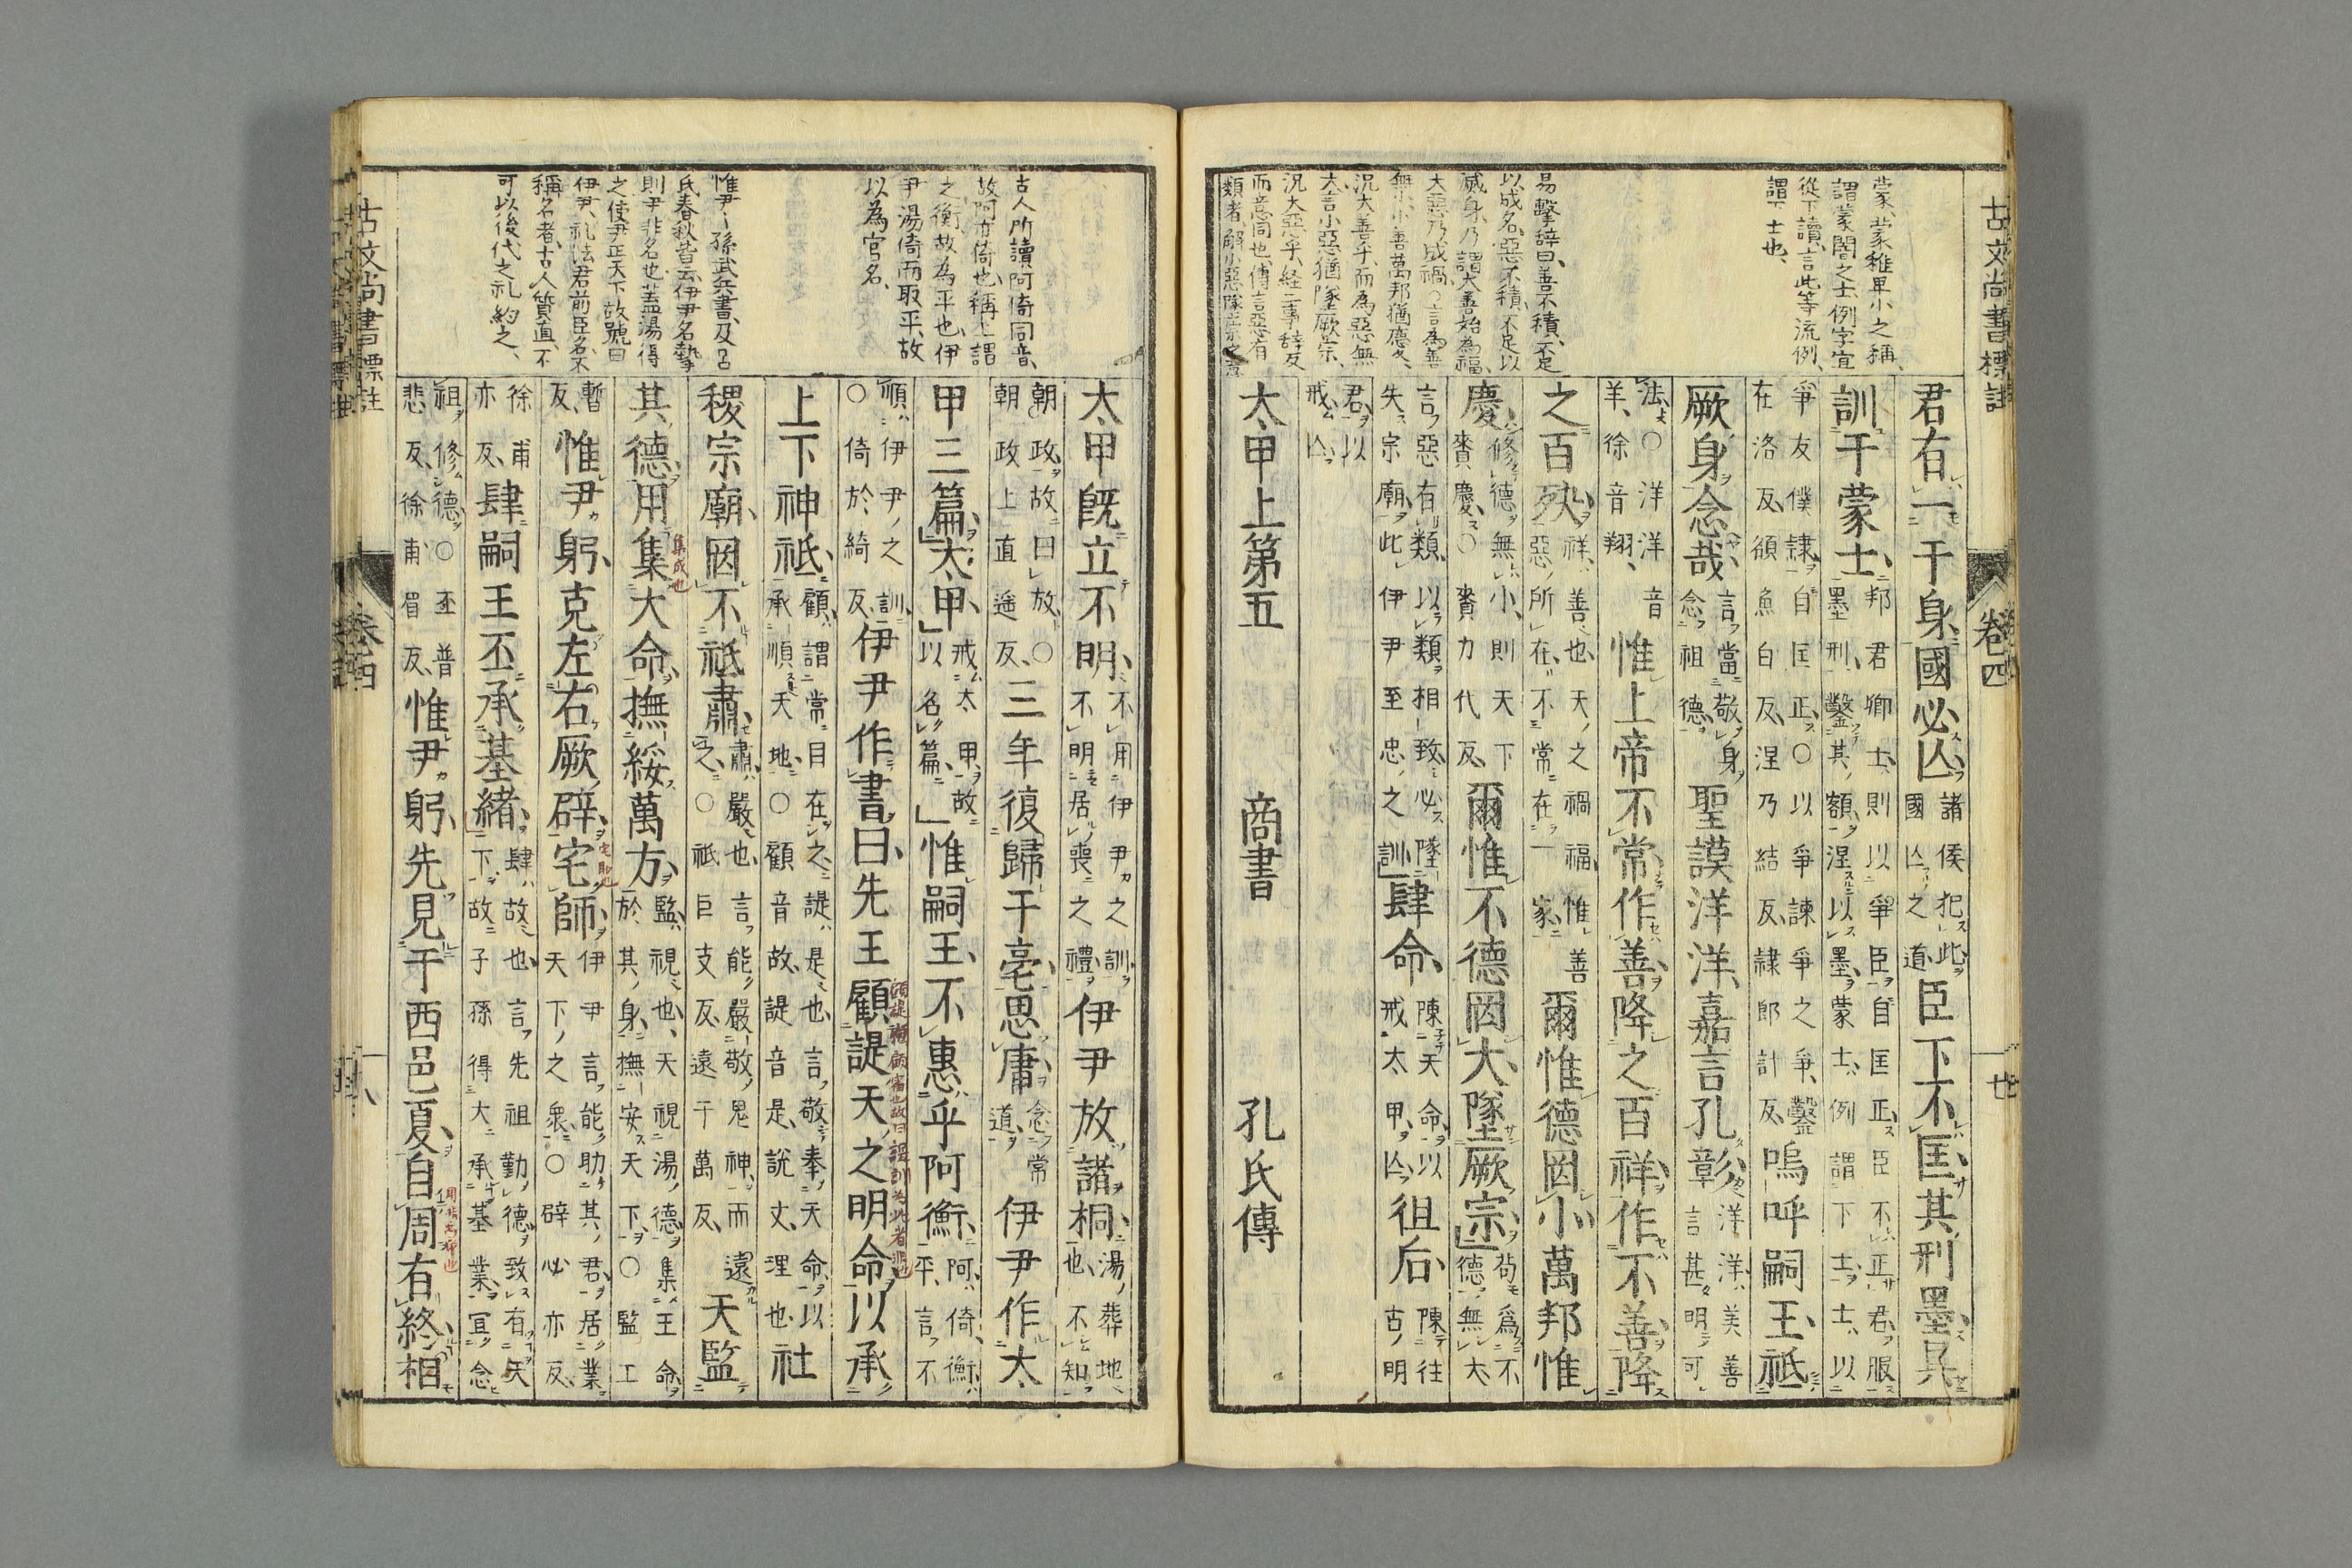 古文尚書標註 卷四 廿
蒙、蒙稚卑小之稱、
謂蒙闇之士、例字宜
從下讀、言此等流例、
謂下士也、
易繫辞曰、善不積、不足
以成名、惡不積、不足以
滅身、乃謂大善始為福、
大惡乃成禍、○言為善
無小、小善萬邦猶慶、
况大善乎、而為惡無
大、言小惡猶墜厥宗、
况大惡乎、経二事辞反
而意同也、傳言惡有
類者、解小惡墜宗之意
君有一于身國必亾諸侯犯此國亾之道臣下不匡其刑墨具
訓于蒙士邦君卿士則以爭臣自匡正臣不正君服墨刑鑿其額涅以墨蒙士例謂下士士以
爭友僕隷自匡正○以爭諫爭之爭鑿在洛反頟魚白反涅乃結反隷郎計反嗚呼嗣王祗
厥身念哉言當敬身念祖德聖謨洋洋嘉言孔彰洋洋美善言甚明可
法○洋洋音羊徐音翔惟上帝不常作善降之百祥作不善降
之百殃祥善也天之禍福惟善惡所在不常在一家爾惟德罔小萬邦惟
慶修德無小則天下賚慶○賚力代反爾惟不德罔大墜厥宗苟為不德無大
言惡有類以類相致必墜失宗廟此伊尹至忠之訓肆命陳天命以戒太甲亾徂后陳往古明
君以戒亾
太甲上第五 商書 孔氏傳
古人所讀阿倚同音、
故阿亦倚也、稱上謂
之衡、故為平也、伊
尹湯倚而取平、故
以為官名、
惟尹丨孫武兵書、及呂
氏春秋皆云、伊尹名摯、
則尹非名也、蓋湯得
之使尹正天下、故號曰
伊尹、礼法君前臣名、不
稱名者、古人質直、不
可以後代之礼約之、
太甲既立不明不用伊尹之訓不明居喪之禮伊尹放諸桐湯葬地也不知
朝政故曰放○朝政上直遥反三年復歸于亳思庸念常道伊尹作太
甲三篇太甲戒太甲故以名篇惟嗣王不惠乎阿衡阿倚衡平言不
順伊尹之訓○倚於綺反伊尹作書曰先王顧諟天之明命以承
上下神祗顧謂常目在之諟是也言敬奉天命以承順天地○顧音故諟音是說丈理也社
稷宗廟罔不祗肅肅嚴也言能嚴敬鬼神而遠之○祗巨支反遠于萬反天監
其德用集大命撫綏萬方監視也天視湯德集王命於其身撫安天下○監工
集成也
暫反惟尹躬克左右厥辟宅師伊尹言能助其君居業天下之衆○辟必亦反
徐甫亦反肆嗣王丕承基緒肆故也言先祖勤德致有天下故子孫得大承基業宜念
祖修德○丕普悲反徐甫眉反惟尹躬先見于西邑夏自周有終相
古文尚書標註 卷四